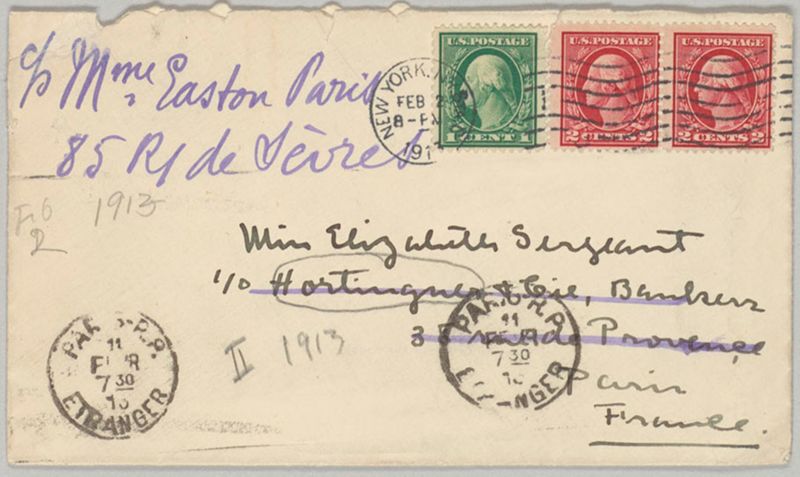 c/o Mme Easton Paris
85 R/ de Sèvres
U.S.POSTAGE
1 CENT 1
U.S.POSTAGE
2 CENTS 2
U.S.POSTAGE
2 CENTS 2
NEW YORK, N.
FEB
8-PM
191
1913
Miss Elizabeth Sergeant
c/o Hottinguer & Cie, Bankers
38 rue de Provence
Paris
France.
II 1913
PARIS R.P.
11
7 30
13
ETRANGER
PARIS R.P.
11
7 30
13
ETRANGER